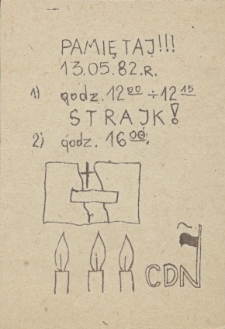 PAMIĘTAJ!!!
13.05.82.R.
1) godz. 12⁰⁰ ÷ 12¹⁵
STRAJK!
2) godz. 16⁰⁰.
CDN